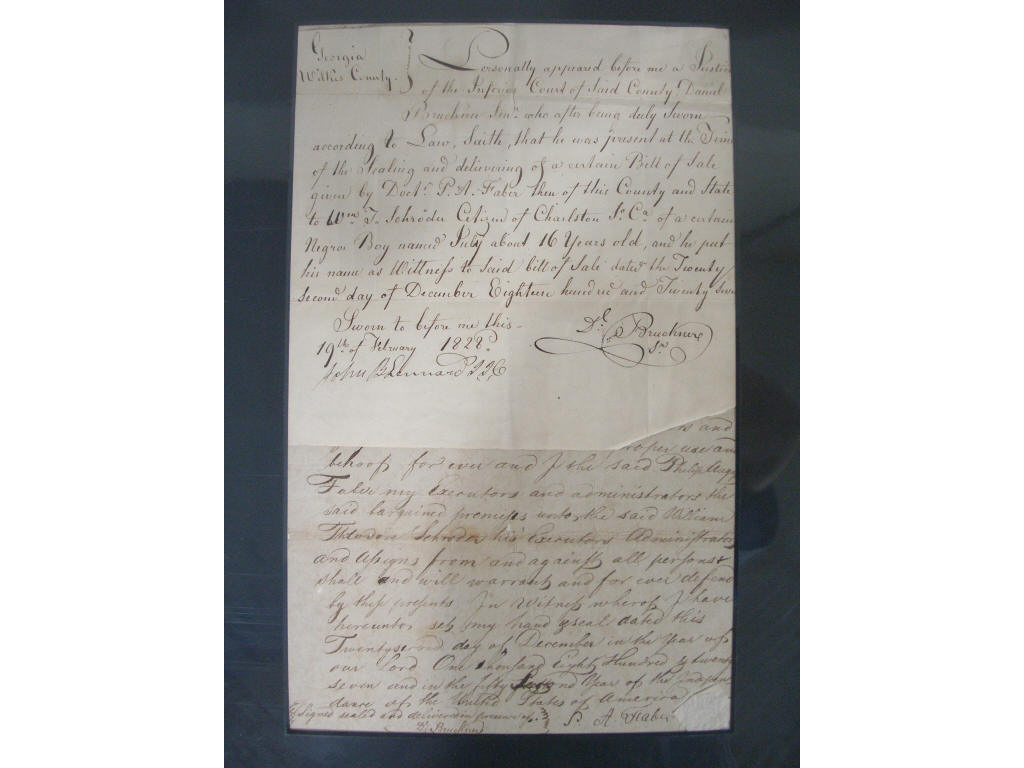 Georgia
Wilkes County.
Personally appeared before me a Justice
of the Inferior Court of Said County Daniel
Bruckner Senr. who after being duly Sworn
according to Law, Saith, that he was present at the Time
of the Sealing and delivering of a certain Bill of Sale
given by Doctr. P. A. Faber then of this County and State
to Wm. T. Schröder Citizen of Charlston So. Ca. of a certain
Negroe Boy named July about 16 Years old, and he put
his name as Wittness to Said bill of Sale dated the Twenty
Second day of December Eighteen hundred and Twenty Seven
Sworn to before me this
19th of February 1828.
Dl. Bruckner
Sr.
John
rs and
roper use and
behoof for ever and I the said Philip Aug
Faber my Executors and administrators the
said bargained premises unto the said William
Theodore Schroder his Executors Administrators
and assigns from and against all persons
shall and will warrant and for ever defend
by these presents In Witness whereof I have
hereunto set my hand & seal dated this
Twenty second day of December in the Year of
our Lord One thousand Eight Hundred & twenty
seven and in the fifty second Year of the indepen
dance of the United States of America
Signed sealed and delivered in presence of
P. A. Faber
Dl. Bruckner